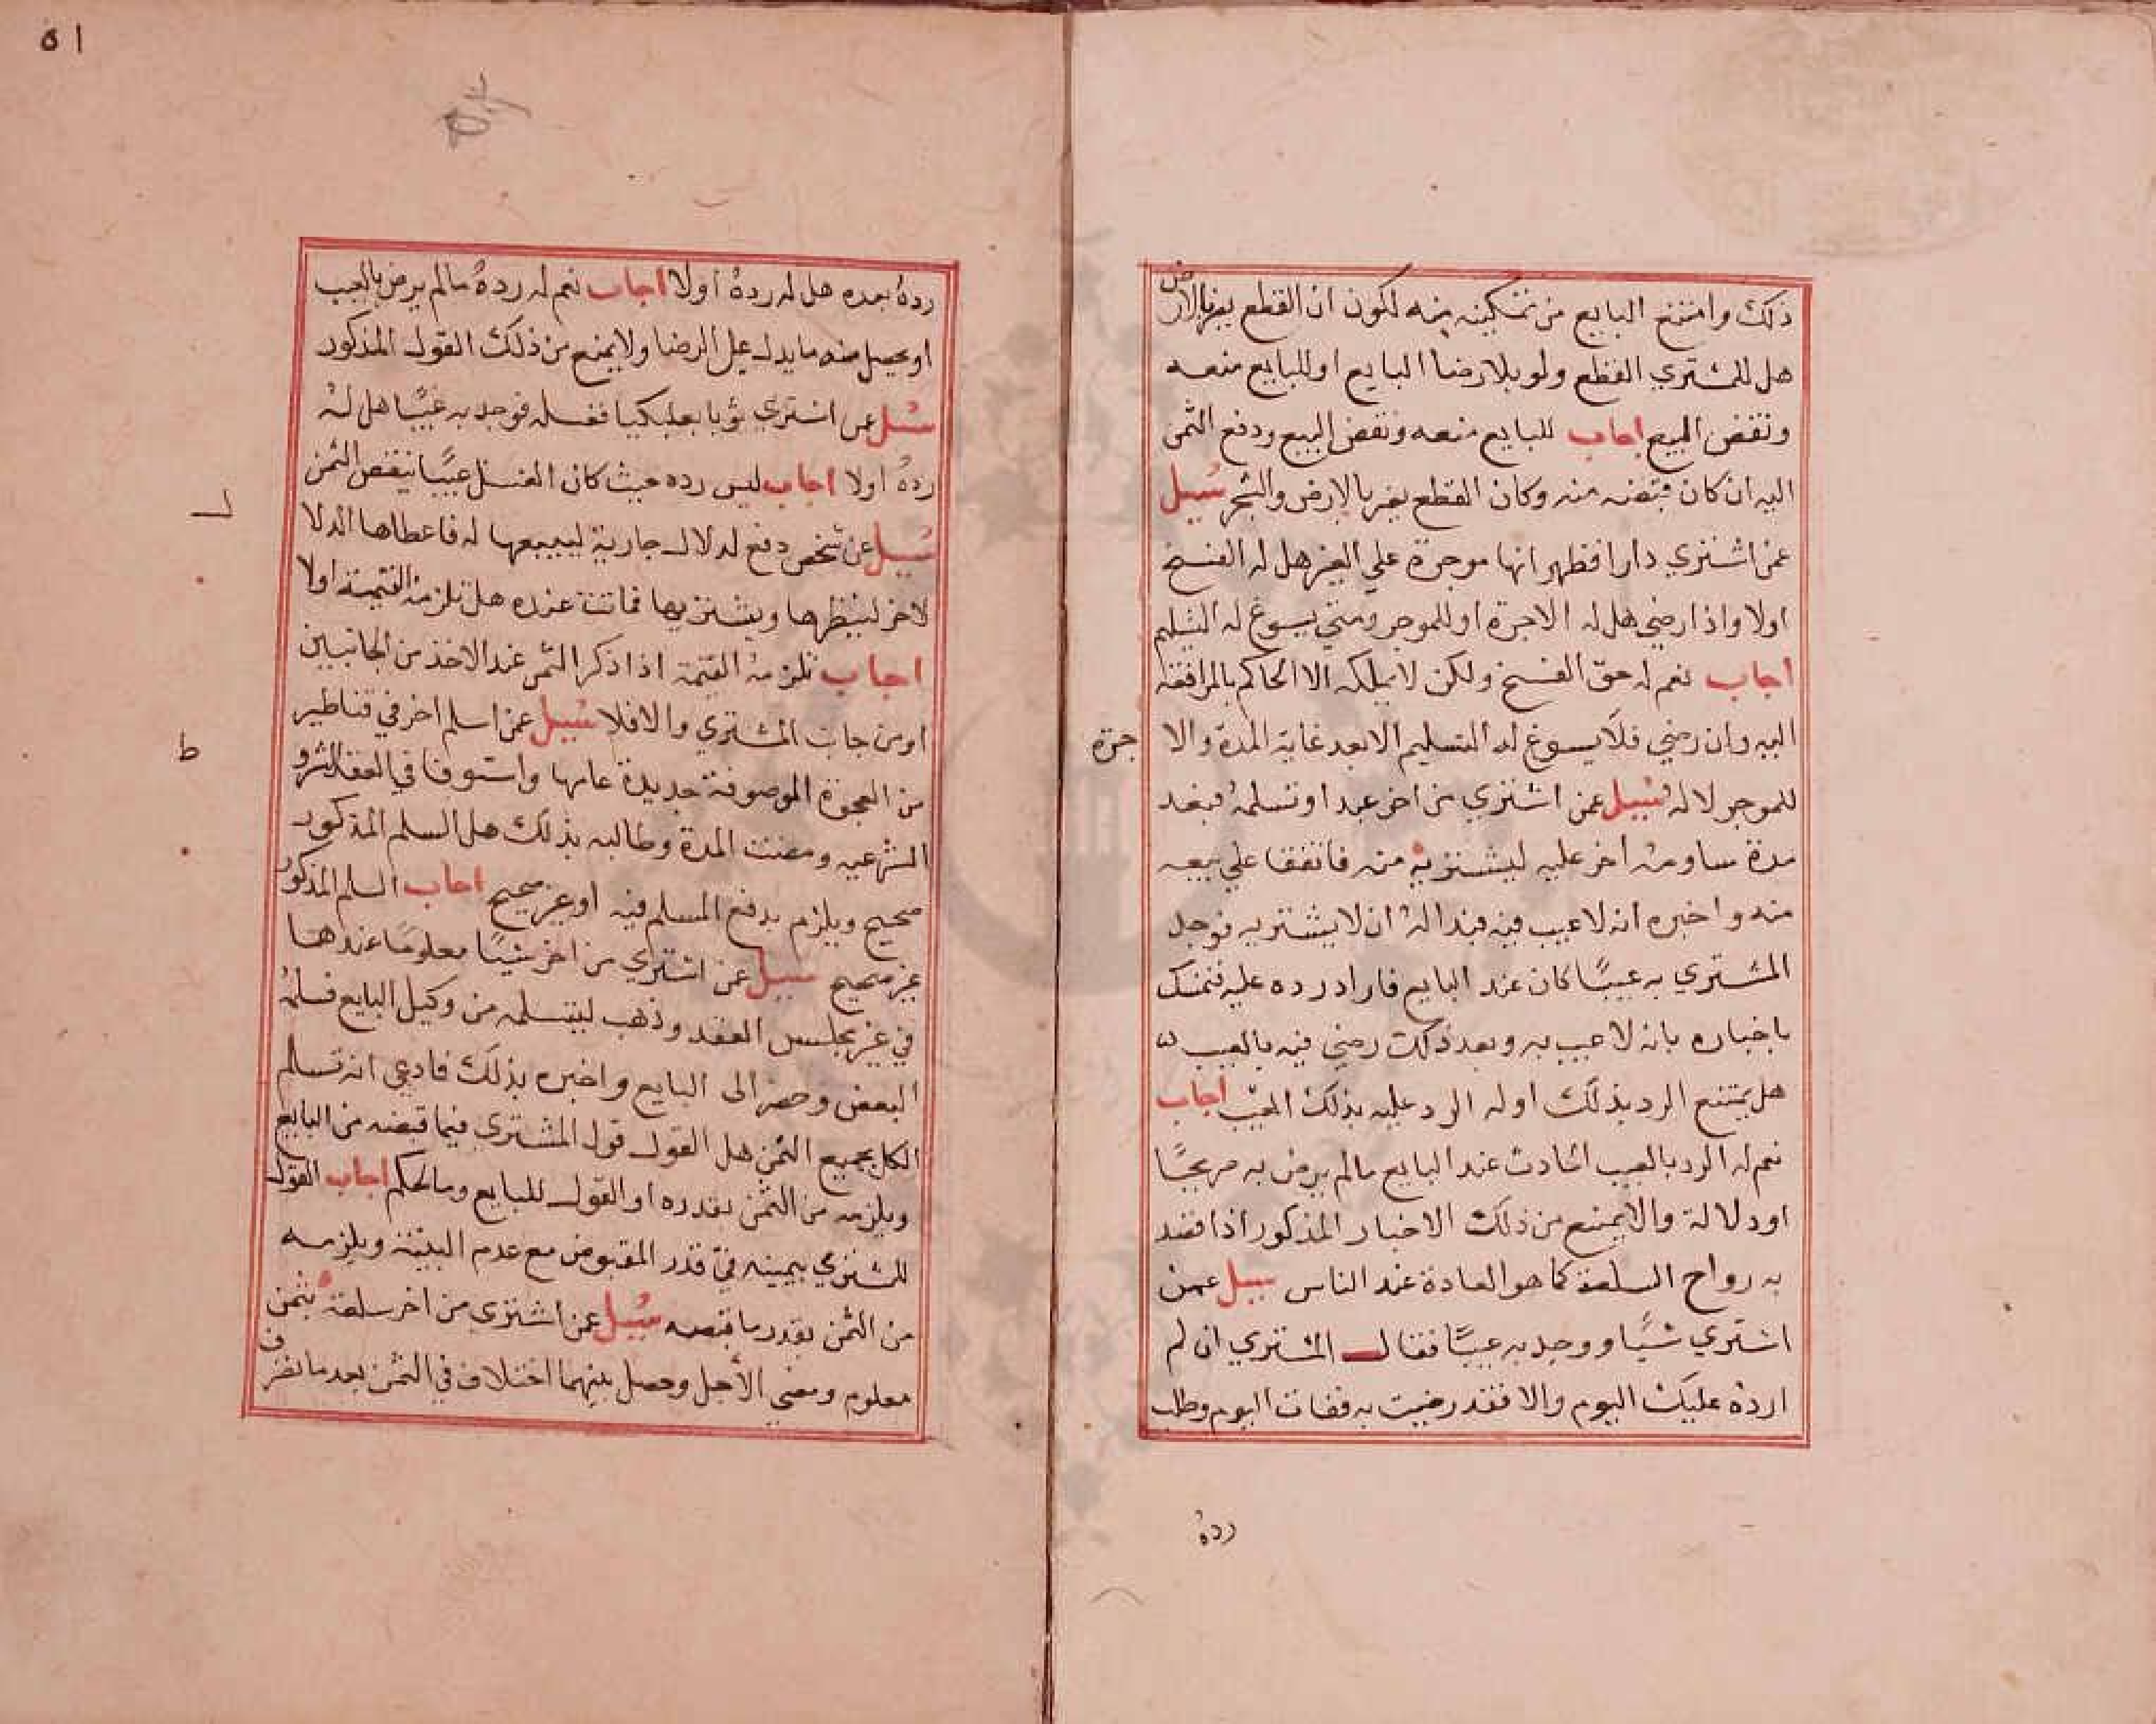 ذلك وامتنع البايع من تمكينه منه لكون ان القطع يضر بالارض
هل للمشتري القطع ولو بلا رضا البايع او للبايع منعه
ونقض البيع اجاب للبايع منعه ونقض البيع ودفع الثمن
اليه ان كان قبضه منه وكان القطع يضر بالارض والشجر سيل
عمن اشتري دارا فظهر انها موجرة علي الغير هل له الفسخ
اولا واذا رضي هل له الاجرة او للموجر ومتي يسوغ له التسليم
اجاب نعم له حق الفسخ ولكن لا يملكه الا الحاكم بالمرافعة
اليه وان رضي فلا يسوغ له التسليم الا بعد غاية المدة والا جرة
للموجر لا له سيل عمن اشتري من اخر عبدا وتسلمه فبعد
مدة ساومه اخر عليه ليشتريه منه فاتفقا علي بيعه
منه واخبره انه لا عيب فيه فبدا له ان لا يشتريه فوجد
المشتري به عيبا كان عند البايع فاراد رده عليه فتمسك
باخباره بانه لا عيب به وبعد ذلك رضي فيه بالعيب
هل يمتنع الرد بذلك او له الرد عليه بذلك العيب اجاب
نعم له الرد بالعيب الحادث عند البايع مالم يرض به صريحا
او دلالة والا يمنع من ذلك الاخبار المذكور اذا قصد
به رواح السلعة كما هو العادة عند الناس سيل عمن
اشتري شيا ووجد به عيبا فقال المشتري ان لم
ارده عليك اليوم والا فقد رضيت به ففات اليوم وطلب
رده
٥١
رده بعده هل له رده اولا اجاب نعم له رده مالم يرض بالعيب
او يحصل منه ما يدل علي الرضا ولا يمنع من ذلك القول المذكور
سئل عمن اشتري ثوبا بعلبكيا فغسله فوجد به عيبا هل له
رده اولا اجاب ليس رده حيث كان الغسل عيبا ينقص الثمن
سيل عن شخص دفع لدلال جارية ليبيعها له فاعطاها الدلا
ل
لاخر لينظرها ويشتريها فماتت عنده هل تلزمه القيمة اولا
اجاب تلزمه القيمة اذا ذكر الثمن عند الاخذ من الجانبين
او من جانب المشتري والا فلا سيل عمن اسلم اخر في قناطير
من العجوة الموصوفة جديدة عامها واستوفا في العقد الشرو
ط
الشرعيه ومضت المدة وطالبه بذلك هل السلم المذكور
صحيح ويلزم بدفع المسلم فيه او غير صحيح اجاب السلم المذكور
غير صحيح سيل عمن اشتري من اخر شيا معلوما عندهما
في غير مجلس العقد وذهب ليتسلمه من وكيل البايع فسلمه
البعض وحضر الى البايع واخبره بذلك فادعي انه تسلم
الكل بجميع الثمن هل القول قول المشتري فيما قبضه من البايع
ويلزمه من الثمن بقدره او القول للبايع وما الحكم اجاب القول
للمشتري بيمينه في قدر المقبوض مع عدم البينة ويلزمه
من الثمن بقدر ما قبضه سيل عمن اشتري من اخر سلعة بثمن
معلوم ومضي الأجل وحصل بينهما اختلاف في الثمن بعد ما تصرف